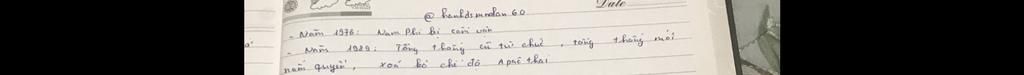 Date
@ hanhdsmndan 60
- Năm 1976: Nam Phi bị cấm vận
- Năm 1989: Tổng thống cũ từ chức, tổng thống mới
nắm quyền, xoá bỏ chế độ Apác thai